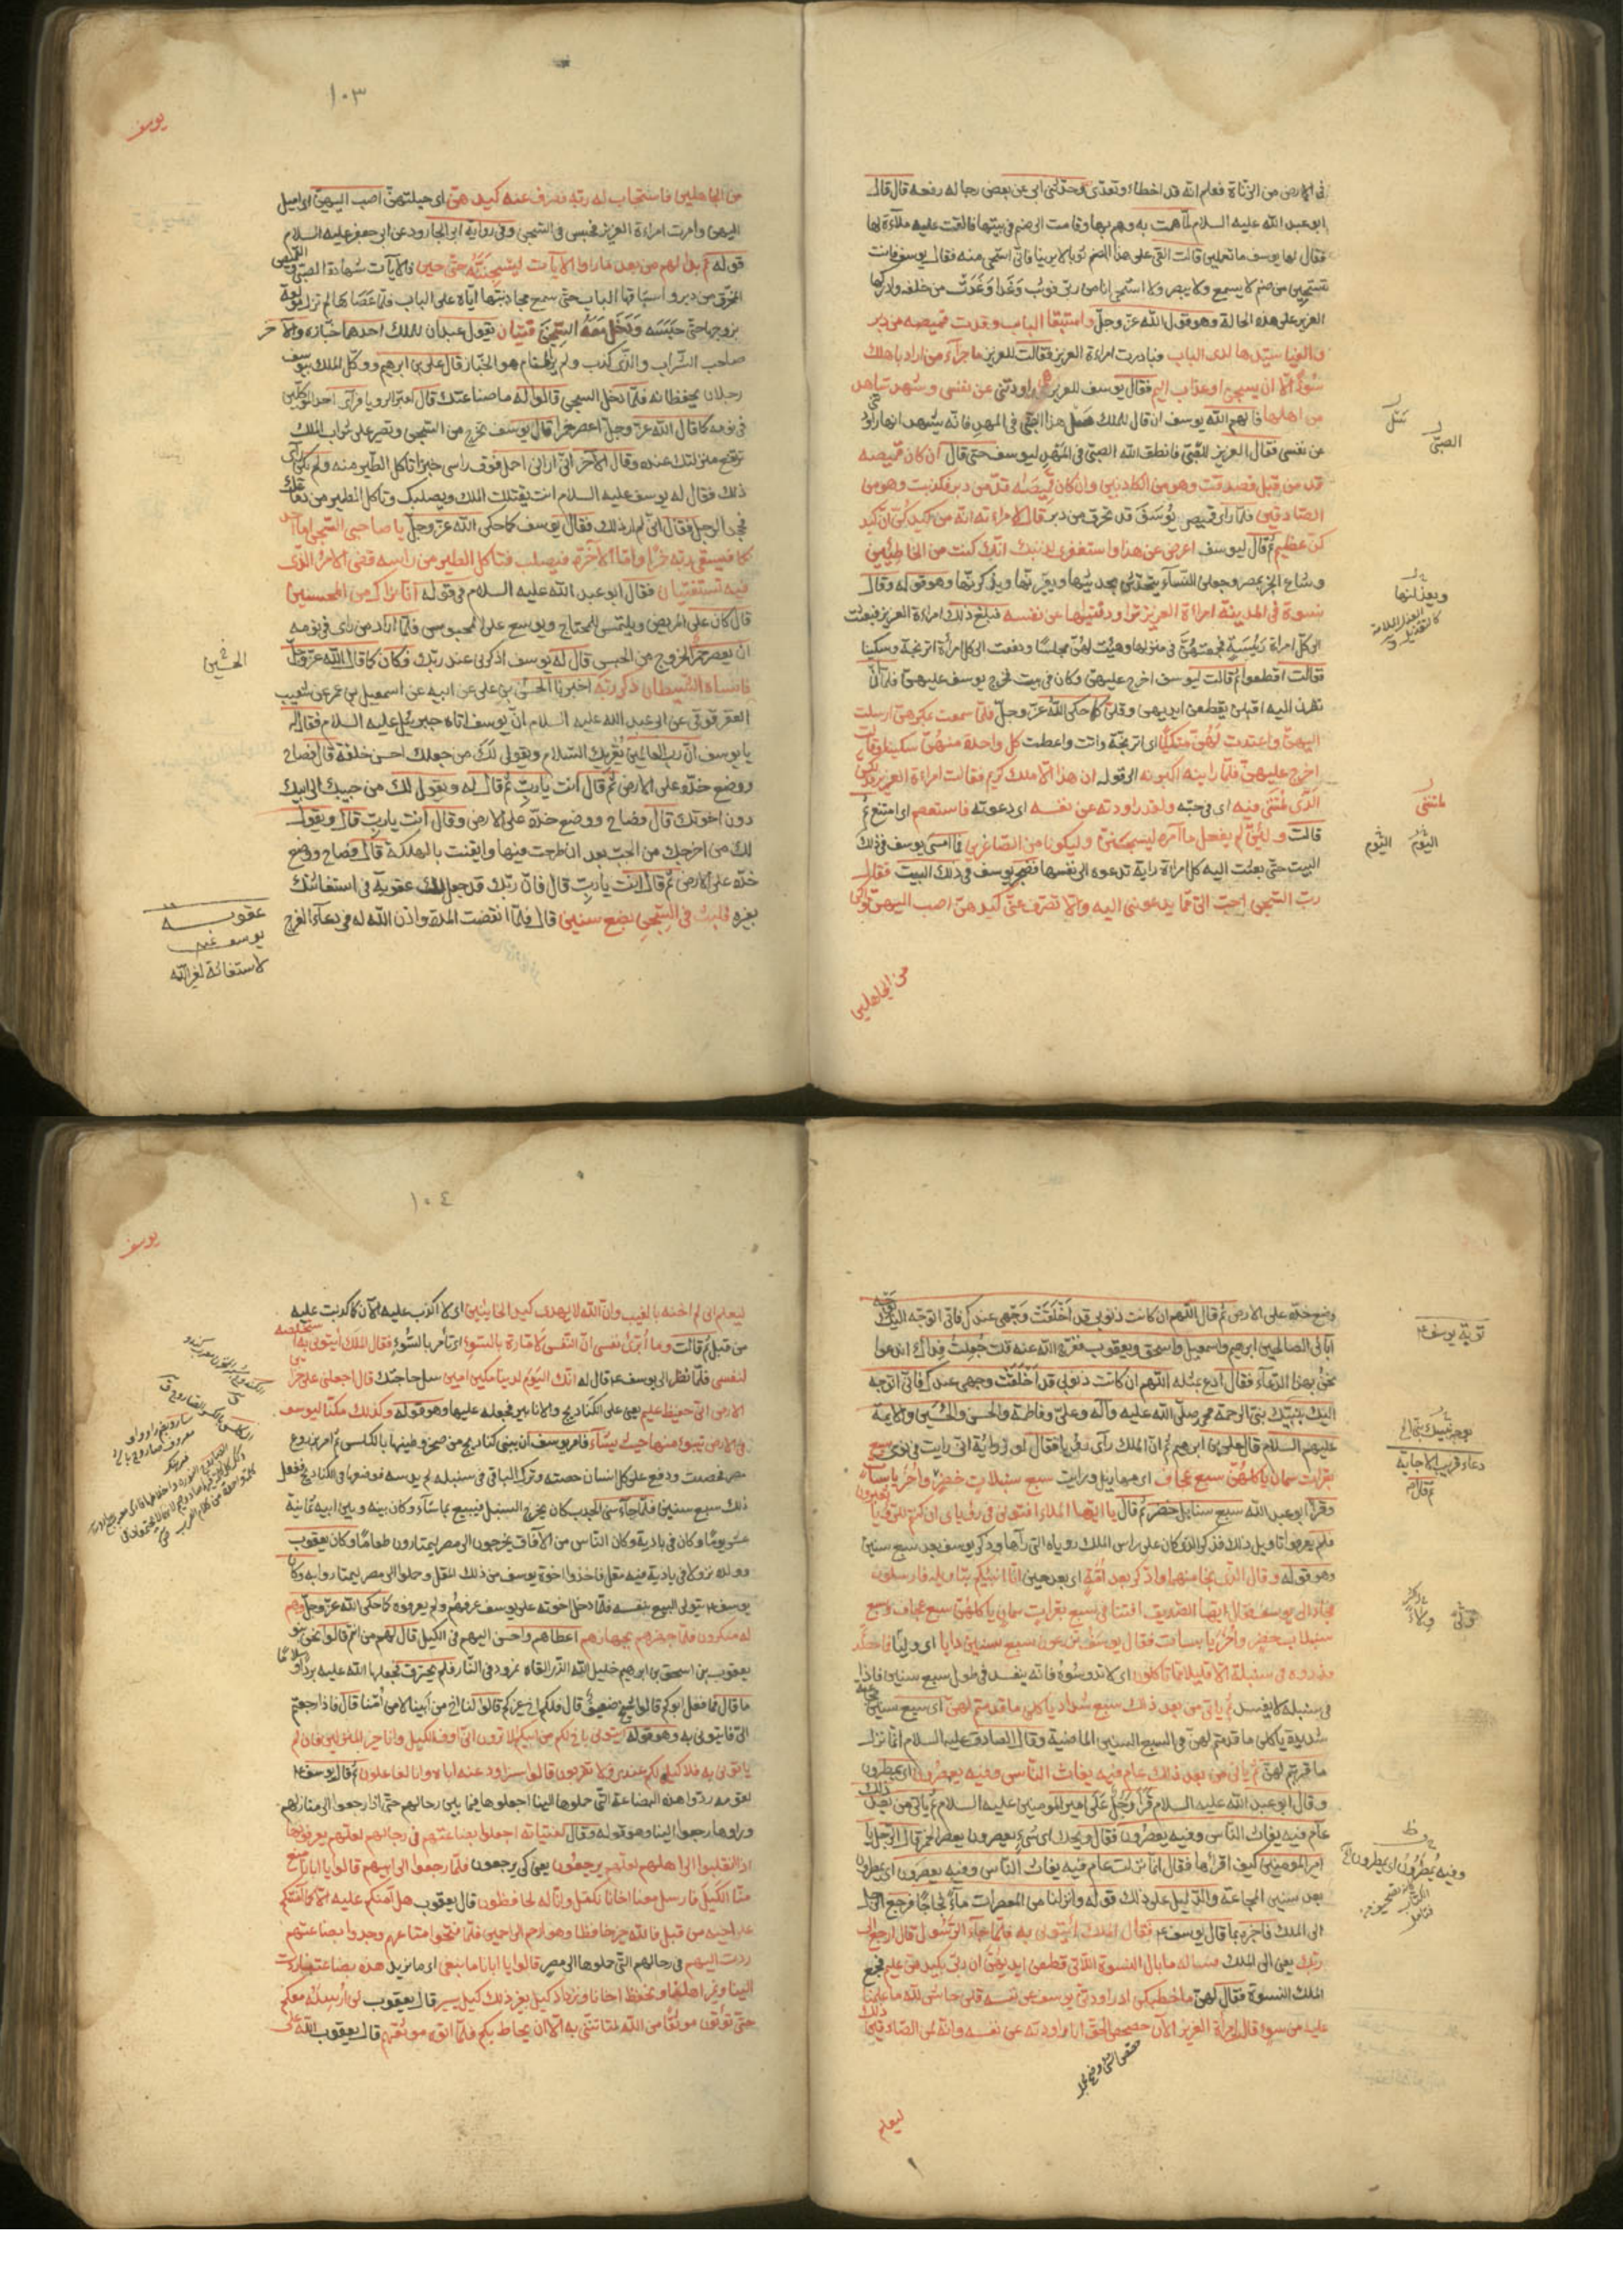 في الارض من الزناة فعلم انه قد اخطاء وتعدى وحدثني ابي عن بعض رجاله رفعه قال قال
ابو عبد الله عليه السلام لما همت به وهم بها وقامت الى صنم في بيتها فالقت عليه ملاءة لها
فقال لها يوسف ما تعملين قالت القى على هذا الصنم ثوبا لا يرينا فاني استحيى منه فقال يوسف فانت
تستحيين من صنم لا يسمع ولا يبصر ولا استحيى انا من ربي فوثب وعدا وعدت من خلفه وادركها
العزيز على هذه الحالة وهو قول الله عز وجل واستبقا الباب وقدت قميصه من دبر
والفيا سيدها لدى الباب فبادرت امراءة العزيز فقالت للعزيز ما جزآء من اراد باهلك
سوءا الا ان يسجن او عذاب اليم فقال يوسف للعزيز هى راودتني عن نفسى وشهد شاهد
من اهلها فالهم الله يوسف ان قال للملك سل هذا الصبى في المهد فانه يشهد انها راودتني
عن نفسى فقال العزيز للصبى فانطق الله الصبى في المهد ليوسف حتى قال ان كان قميصه
قد من قبل فصدقت وهو من الكاذبين وان كان قميصه قد من دبر فكذبت وهو من
الصادقين فلما راى قميص يوسف قد تخرق من دبر قال لامراءته انه من كيدكن ان كيد
كن عظيم ثم قال ليوسف اعرض عن هذا واستغفرى لذنبك انك كنت من الخاطئين
وشاع الخبر بمصر وجعلن النسآء يتحدثن بحديثها ويعيرنها ويذكرنها وهو قوله وقال
نسوة في المدينة امراءة العزيز تراود فتيها عن نفسه فبلغ ذلك امراءة العزيز فبعثت
الى كل امراءة رئيسة فجمعتهن في منزلها وهيئت لهن مجلسا ودفعت الى كل امراة اترنجة وسكينا
فقالت اقطعوا ثم قالت ليوسف اخرج عليهن وكان في بيت فخرج يوسف عليهن فلما ان
نظرن اليه اقبلن يقطعن ايديهن وقلن كما حكى الله عز وجل فلما سمعت بمكرهن ارسلت
اليهن واعتدت لهن متكئا اى اترنجة واتت واعطت كل واحدة منهن سكينا وقالت
اخرج عليهن فلما راينه اكبرنه الى قوله ان هذا الا ملك كريم فقالت امراءة العزيز فذلكن
الذى لمتننى فيه اى في حبه ولقد راودته عن نفسه اى دعوته فاستعصم اى امتنع ثم
قالت ولئن لم يفعل ما آمره ليسجنن وليكونا من الصاغرين فما امسى يوسف في ذلك
البيت حتى بعثت اليه كل امراة راته تدعوه الى نفسها فضجر يوسف في ذلك البيت فقال
رب السجن احب الى مما يدعونني اليه والا تصرف عنى كيدهن اصب اليهن واكن
من الجاهلين
سل
الصبى
ويعذلنها
لمتننى
اليوم اليوم
١٠٣
يوسف
من الجاهلين فاستجاب له ربه فصرف عنه كيدهن اى حيلتهن اصب اليهن اى اميل
اليهن وامرت امراءة العزيز فحبس في السجن وفي رواية ابى الجارود عن ابى جعفر عليه السلام
قوله ثم بدا لهم من بعد ما راوا الآيات ليسجننه حتى حين فالآيات شهادة الصبى والقميص
المخرق من دبر واستباقهما الباب حتى سمع مجاذبتها اياه على الباب فلما عصاها لم تزل مولعة
بزوجها حتى حبسه ودخل معه السجن فتيان يقول عبدان للملك احدهما خبازه والآخر
صاحب الشراب والذى كذب ولم ير المنام هو الخباز قال على بن ابرهيم ووكل الملك بيوسف
رجلان يحفظانه فلما دخل السجن قالوا له ما صناعتك قال اعبر الرويا فراى احد الموكلين
في نومه كما قال الله عز وجل اعصر خمرا قال يوسف تخرج من السجن وتصير على شراب الملك
ترتفع منزلتك عنده وقال الآخر انى ارانى احمل فوق راسى خبزا تاكل الطير منه ولم يكن راى
ذلك فقال له يوسف عليه السلام انت يقتلك الملك ويصلبك وتاكل الطير من دماغك
فجحد الرجل فقال انى لم ار ذلك فقال يوسف كما حكى الله عز وجل يا صاحبى السجن اما احد
كما فيسقى ربه خمرا واما الآخر فيصلب فتاكل الطير من راسه قضى الامر الذى
فيه تستفتيان فقال ابو عبد الله عليه السلام في قوله انا نراك من المحسنين
قال كان يقوم على المريض ويلتمس للمحتاج ويوسع على المحبوس فلما اراد من راى في نومه
ان يعصر خمرا الخروج من الحبس قال له يوسف اذكرنى عند ربك فكان كما قال الله عز وجل
فانساه الشيطان ذكر ربه اخبرنا الحسن بن على عن ابيه عن اسمعيل بن عمر عن شعيب
العقرقوفى عن ابى عبد الله عليه السلام ان يوسف اتاه جبرئيل عليه السلام فقال له
يا يوسف ان رب العالمين يقرئك السلام ويقول لك من جعلك احسن خلقه قال فصاح
ووضع خده على الارض ثم قال انت يا رب ثم قال له ويقول لك من حببك الى ابيك
دون اخوتك قال فصاح ووضع خده على الارض وقال انت يا رب قال ويقول
لك من اخرجك من الجب بعد ان طرحت فيها وايقنت بالهلكة قال فصاح ووضع
خده على الارض ثم قال انت يا رب قال فان ربك قد جعل لك عقوبة في استغاثتك
بغيره فلبث في السجن بضع سنين قال فلما انقضت المدة واذن الله له في دعآء الفرج
الحسين
عقوبة
يوسف
لاستغاثة لغير الله
وضع خده على الارض ثم قال اللهم ان كانت ذنوبى قد اخلقت وجهى عندك فانى اتوجه اليك بوجه
آبائى الصالحين ابرهيم واسمعيل واسحق ويعقوب ففرج الله عنه قلت جعلت فداك اندعوا
نحن بهذا الدعآء فقال ادع بمثله اللهم ان كانت ذنوبى قد اخلقت وجهى عندك فانى اتوجه
اليك بنبيك نبى الرحمة محمد صلى الله عليه وآله وعلى وفاطمة والحسن والحسين والائمة
عليهم السلام قال على بن ابرهيم ثم ان الملك راى رؤيا فقال لوزرائه انى رايت في نومى سبع
بقرات سمان ياكلهن سبع عجاف اى مهازيل ورايت سبع سنبلات خضر واخر يابسات
وقرا ابو عبد الله سبع سنابل خضر ثم قال يا ايها الملاء افتونى في رؤياى ان كنتم للرؤيا تعبرون
فلم يعرفوا تاويل ذلك فذكر الذى كان على راس الملك روياه التى رآها وذكر يوسف بعد سبع سنين
وهو قوله وقال الذى نجا منهما وادكر بعد امة اى بعد حين انا انبئكم بتاويله فارسلون
فجآء الى يوسف فقال ايها الصديق افتنا في سبع بقرات سمان ياكلهن سبع عجاف وسبع
سنبلات خضر واخر يابسات فقال يوسف تزرعون سبع سنين دابا اى ولآء فما حصدتم
فذروه في سنبله الا قليلا مما تاكلون اى لا تدوسوه فانه يفسد في طول سبع سنين فاذا كان
في سنبله لا يفسد ثم ياتى من بعد ذلك سبع شداد ياكلن ما قدمتم لهن اى سبع سنين
شديدة ياكلن ما قدمتم لهن في السبع السنين الماضية وقال الصادق عليه السلام انما نزل
ما قربتم لهن ثم ياتى من بعد ذلك عام فيه يغاث الناس وفيه يعصرون اى يمطرون
وقال ابو عبد الله عليه السلام قرا رجل على امير المومنين عليه السلام ثم ياتى من بعد ذلك
عام فيه يغاث الناس وفيه يعصرون فقال ويحك اى شىء يعصرون يعصر الخمر قال الرجل يا
امير المومنين كيف اقراها فقال انما نزلت عام فيه يغاث الناس وفيه يعصرون اى يمطرون
بعد سنين المجاعة والدليل على ذلك قوله وانزلنا من المعصرات مآء ثجاجا فرجع الرجل
الى الملك فاخبره بما قال يوسف فقال الملك ائتونى به فلما جآءه الرسول قال ارجع الى
ربك يعنى الى الملك فسئله ما بال النسوة اللاتى قطعن ايديهن ان ربى بكيدهن عليم فجمع
الملك النسوة فقال لهن ما خطبكن اذ راودتن يوسف عن نفسه قلن حاش لله ما علمنا
عليه من سوء قالت امراة العزيز الآن حصحص الحق انا راودته عن نفسه وانه لمن الصادقين ذلك
ليعلم
توبة يوسف
دعاء قريب الاجابة
ولاء
١٠٤
يوسف
ليعلم انى لم اخنه بالغيب وان الله لا يهدى كيد الخاينين اى لا اكذب عليه الآن كما كذبت عليه
من قبل ثم قالت وما ابرئ نفسى ان النفس لامارة بالسوء اى تامر بالسوء فقال الملك ايتونى به استخلصه
لنفسى فلما نظر الى يوسف قال له انك اليوم لدينا مكين امين سل حاجتك قال اجعلنى على خزائن
الارض انى حفيظ عليم يعنى على الكناديج والانابير فجعله عليها وهو قوله وكذلك مكنا ليوسف
في الارض يتبوء منها حيث يشآء فامر يوسف ان يبنى كناديج من صخر وطينها بالكلس ثم امر بزروع
مصر فحصدت ودفع على كل انسان حصته وترك الباقى في سنبله لم يدسه فوضعها في الكناديج ففعل
ذلك سبع سنين فلما جآء سنى الجدب كان يخرج السنبل فيبيع بما شآء وكان بينه وبين ابيه ثمانية
عشر يوما وكان في بادية وكان الناس من الآفاق يخرجون الى مصر ليمتارون طعاما وكان يعقوب
وولده نزولا في بادية فيه مقل فاخذوا اخوة يوسف من ذلك المقل وحملوا الى مصر ليمتاروا به وكان
يوسف يتولى البيع بنفسه فلما دخل اخوته على يوسف عرفهم ولم يعرفوه كما حكى الله عز وجل وهم
له منكرون فلما جهزهم بجهازهم اعطاهم واحسن اليهم في الكيل قال لهم من انتم قالوا نحن بنو
يعقوب بن اسحق بن ابرهيم خليل الله الذى القاه نمرود في النار فلم يحترق فجعلها الله عليه بردا وسلاما
قال فما فعل ابوكم قالوا شيخ ضعيف قال فلكم اخ غيركم قالوا لنا اخ من ابينا لا من امنا قال فاذا رجعتم
الى فايتونى به وهو قوله ايتونى باخ لكم من ابيكم الا ترون انى اوف الكيل وانا خير المنزلين فان لم
ياتونى به فلا كيل لكم عندى ولا تقربون قالوا سنراود عنه اباه وانا لفاعلون ثم قال يوسف
لقومه ردوا هذه البضاعة التى حملوها الينا اجعلوها فيما بين رحالهم حتى اذا رجعوا الى منازلهم
وراوها رجعوا الينا وهو قوله وقال لفتيانه اجعلوا بضاعتهم في رحالهم لعلهم يعرفونها
اذا انقلبوا الى اهلهم لعلهم يرجعون يعنى كى يرجعون فلما رجعوا الى ابيهم قالوا يا ابانا منع
منا الكيل فارسل معنا اخانا نكتل وانا له لحافظون قال يعقوب هل آمنكم عليه الا كما امنتكم
على اخيه من قبل فالله خير حافظا وهو ارحم الراحمين فلما فتحوا متاعهم وجدوا بضاعتهم
ردت اليهم في رحالهم التى حملوها الى مصر قالوا يا ابانا ما نبغى اى ما نريد هذه بضاعتنا ردت
الينا ونمير اهلنا ونحفظ اخانا ونزداد كيل بعير ذلك كيل يسير قال يعقوب لن ارسله معكم
حتى تؤتون موثقا من الله لتاتننى به الا ان يحاط بكم فلما اتوه موثقهم قال يعقوب الله على